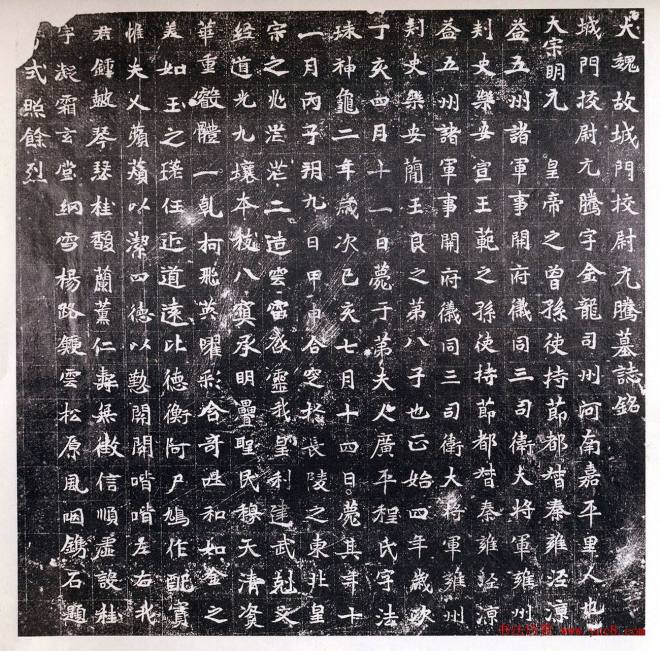 大魏故城門挍尉元騰墓誌銘
城門挍尉元騰字金龍司州河南嘉平里人也
太宗明元　皇帝之曾孫使持節都督秦雍涇涼
益五州諸軍事開府儀同三司衛大將軍雍州
刾史樂安宣王範之孫使持節都督秦雍涇涼
益五州諸軍事開府儀同三司衛大將軍雍州
刾史樂安蕳王良之第八子也正始四年歲次
丁亥四月十一日薨于第夫人廣平程氏字法
珠神龜二年歲次己亥七月十四日薨其年十
一月丙子朔九日甲申合窆於長陵之東北皇
宗之兆茫茫二造雲雷啓靈我皇利建武剋文
經道光九壤本枝八冥承明疊聖民穆天清資
華重叡體一乹柯飛英曜彩含奇誕和如金之
美如玉之瑳任迩道遠比德衡阿尸鳩作配實
惟夫人蘋蘋以潔四德以懃開開喈喈左右我
君鍾皷琴瑟桂馥蘭薰仁壽無徵信順虛設桂
字凝霜玄堂網雪楊路鍾雲松原風咽鐫石題
式照餘烈
書法